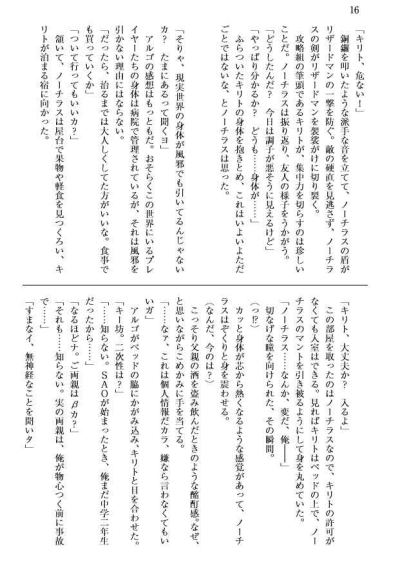 16
「キリト、危ない！」
　銅鑼を叩いたような派手な音を立てて、ノーチラスの盾が
リザードマンの一撃を防ぐ。敵の硬直を見逃さず、ノーチラ
スの剣がリザードマンを袈裟がけに切り裂く。
　攻略組の筆頭であるキリトが、集中力を切らすのは珍しい
ことだ。ノーチラスは振り返り、友人の様子をうかがう。
「どうしたんだ？　今日は調子が悪そうに見えるけど」
「やっぱり分かるか？　どうも……身体が……」
　ふらついたキリトの身体を抱きとめ、これはいよいよただ
ごとではないな、とノーチラスは思った。
「そりゃ、現実世界の身体が風邪でも引いてるんじゃない
カ？　たまにあるって聞くヨ」
　アルゴの感想はもっともだ。おそらくこの世界にいるプレ
イヤーたちの身体は病院で管理されているが、それは風邪を
引かない理由にはならない。
「だったら、治るまでは大人しくしてた方がいいな。食事で
も買っていくか」
「ついて行ってもいいカ？」
　頷いて、ノーチラスは屋台で果物や軽食を見つくろい、キ
リトが泊まる宿に向かった。
「キリト、大丈夫か？　入るよ」
　この部屋を取ったのはノーチラスなので、キリトの許可が
なくても入室はできる。見ればキリトはベッドの上で、ノー
チラスのマントを引き被るようにして身を丸めていた。
「ノーチラス……なんか、変だ、俺――」
　切なげな瞳を向けられた、その瞬間。
（っ!?）
　カッと身体が芯から熱くなるような感覚があって、ノーチ
ラスはぞくりと身を震わせる。
（なんだ、今のは？）
　こっそり父親の酒を盗み飲んだときのような酩酊感。なぜ、
と思いながらこめかみに手を当てる。
「……なァ、これは個人情報だカラ、嫌なら言わなくてもい
いガ」
　アルゴがベッドの脇にかがみ込み、キリトと目を合わせた。
「キー坊。二次性は？」
「……知らない。ＳＡＯが始まったとき、俺まだ中学二年生
だったから……」
「なるほどナ。ご両親はβカ？」
「それも……知らない。実の両親は、俺が物心つく前に事故
で……」
「すまなイ、無神経なことを聞いタ」